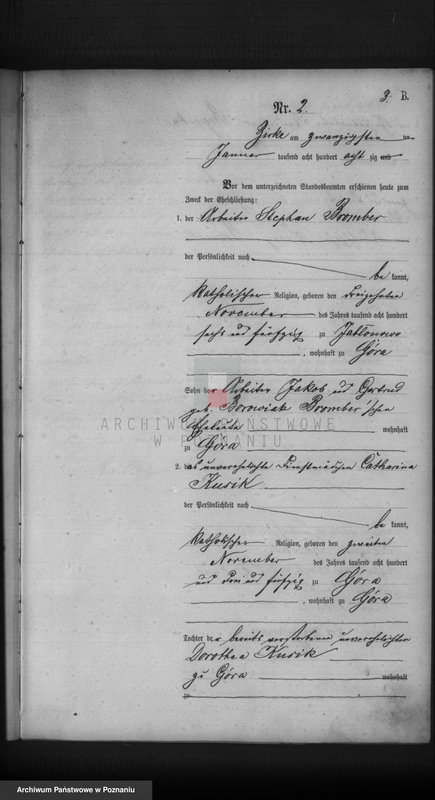 3 B.
Nr. 2.
Zirke am zwanzigsten
Januar tausend acht hundert acht zig und
Vor dem unterzeichneten Standesbeamten erschienen heute zum
Zweck der Eheschließung:
1. der Arbeiter Stephan Bromber
der Persönlichkeit nach
be kannt,
katholischer Religion, geboren den dreizehnten
November des Jahres tausend acht hundert
sechs und fünfzig zu Jabłonowo
, wohnhaft zu Góra
Sohn der Arbeiter Jakob und Gertrud
geb. Borowiak Bromber'schen
Eheleute wohnhaft
zu Góra
2. die unverehelichte Dienstmädchen Catharina
Kusik
der Persönlichkeit nach
be kannt,
katholischer Religion, geboren den zweiten
November des Jahres tausend acht hundert
und drei und fünfzig zu Góra
, wohnhaft zu Góra
Tochter der bereits verstorbenen unverehelichten
Dorothea Kusik
zu Góra wohnhaft
ARCHIWUM PAŃSTWOWE
W POZNANIU
Archiwum Państwowe w Poznaniu